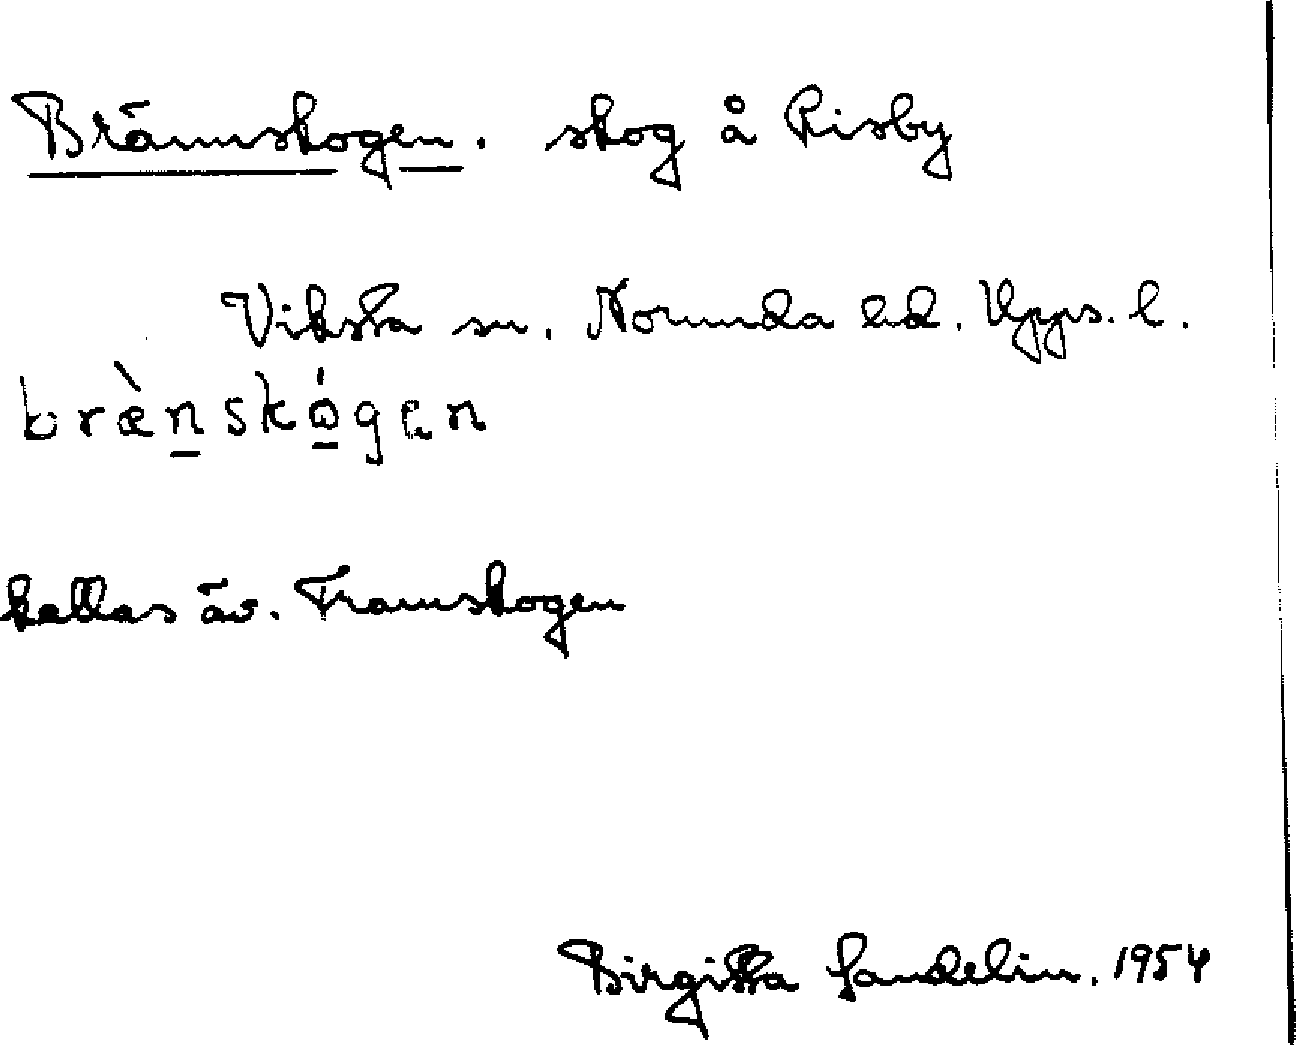 Brännskogen. skog å Risby
Viksta sn. Norunda hd. Upps. l.
bræ̀nskǫ́gan
kallas äv. Framskogen
Birgitta Sandelin. 1954